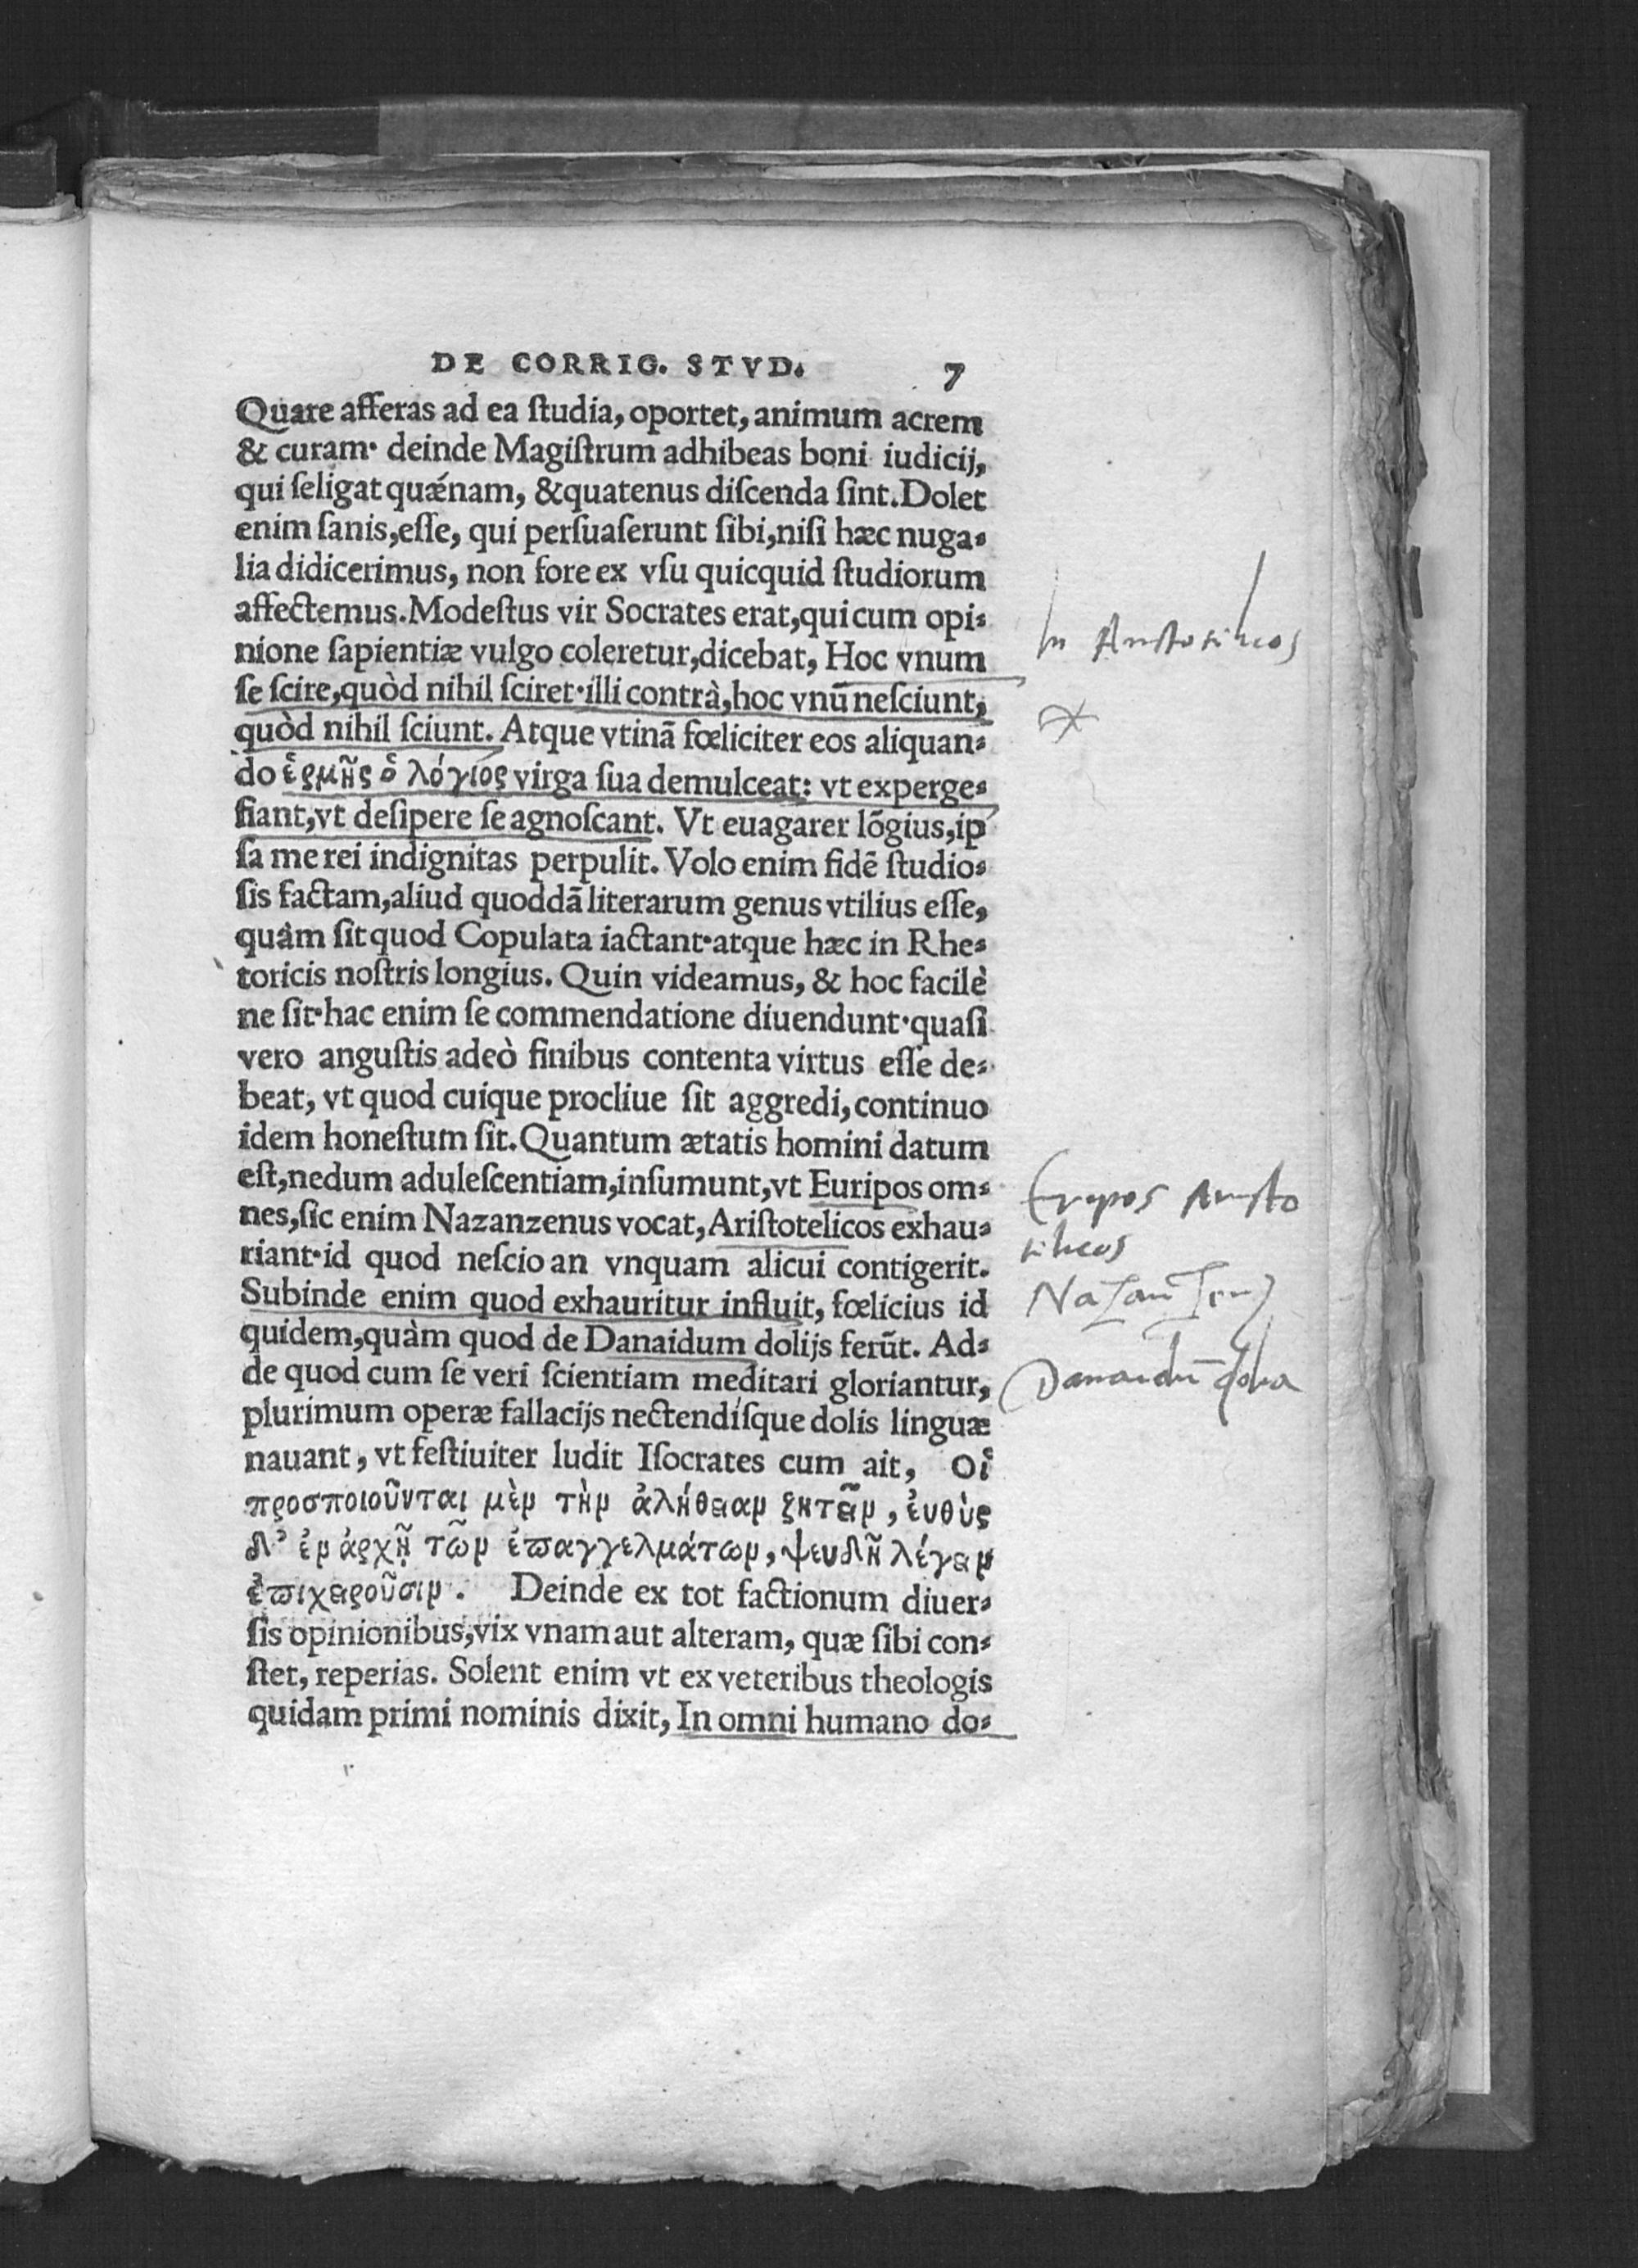 DE CORRIG. STVD. 7
Quare afferas ad ea ſtudia, oportet, animum acrem
& curam· deinde Magiſtrum adhibeas boni iudicij,
qui ſeligat quǽnam, & quatenus diſcenda ſint. Dolet
enim ſanis, eſſe, qui perſuaſerunt ſibi, niſi hæc nuga⸗
lia didicerimus, non fore ex vſu quicquid ſtudiorum
affectemus. Modeſtus vir Socrates erat, qui cum opi⸗
nione ſapientiæ vulgo coleretur, dicebat, Hoc vnum
ſe ſcire, quòd nihil ſciret· illi contrà, hoc vnū neſciunt,
quòd nihil ſciunt. Atque vtinā fœliciter eos aliquan⸗
do ἑρμῆς ὁ λόγιος virga ſua demulceat: vt experge⸗
fiant, vt deſipere ſe agnoſcant. Vt euagarer lōgius, ip
ſa me rei indignitas perpulit. Volo enim fidē ſtudio⸗
ſis factam, aliud quoddā literarum genus vtilius eſſe,
quàm ſit quod Copulata iactant· atque hæc in Rhe⸗
toricis noſtris longius. Quin videamus, & hoc facilè
ne ſit· hac enim ſe commendatione diuendunt· quaſi
vero anguſtis adeò finibus contenta virtus eſſe de⸗
beat, vt quod cuique procliue ſit aggredi, continuo
idem honeſtum ſit. Quantum ætatis homini datum
eſt, nedum aduleſcentiam, inſumunt, vt Euripos om⸗
nes, ſic enim Nazanzenus vocat, Ariſtotelicos exhau⸗
riant· id quod neſcio an vnquam alicui contigerit.
Subinde enim quod exhauritur influit, fœlicius id
quidem, quàm quod de Danaidum dolijs ferūt. Ad⸗
de quod cum ſe veri ſcientiam meditari gloriantur,
plurimum operæ fallacijs nectendíſque dolis linguæ
nauant, vt feſtiuiter ludit Iſocrates cum ait, Οἳ
προσποιοῦνται μὲν τὴν ἀλήθειαν ζητεῖν, ἐυθὺς
δ' ἐν ἀρχῇ τῶν ἐπαγγελμάτων, ψευδῆ λέγειν
ἐπιχειροῦσιν. Deinde ex tot factionum diuer⸗
ſis opinionibus, vix vnam aut alteram, quæ ſibi con⸗
ſtet, reperias. Solent enim vt ex veteribus theologis
quidam primi nominis dixit, In omni humano do⸗
In Aristotelicos
Euripos Aristo
telicos
Danaidū dolia